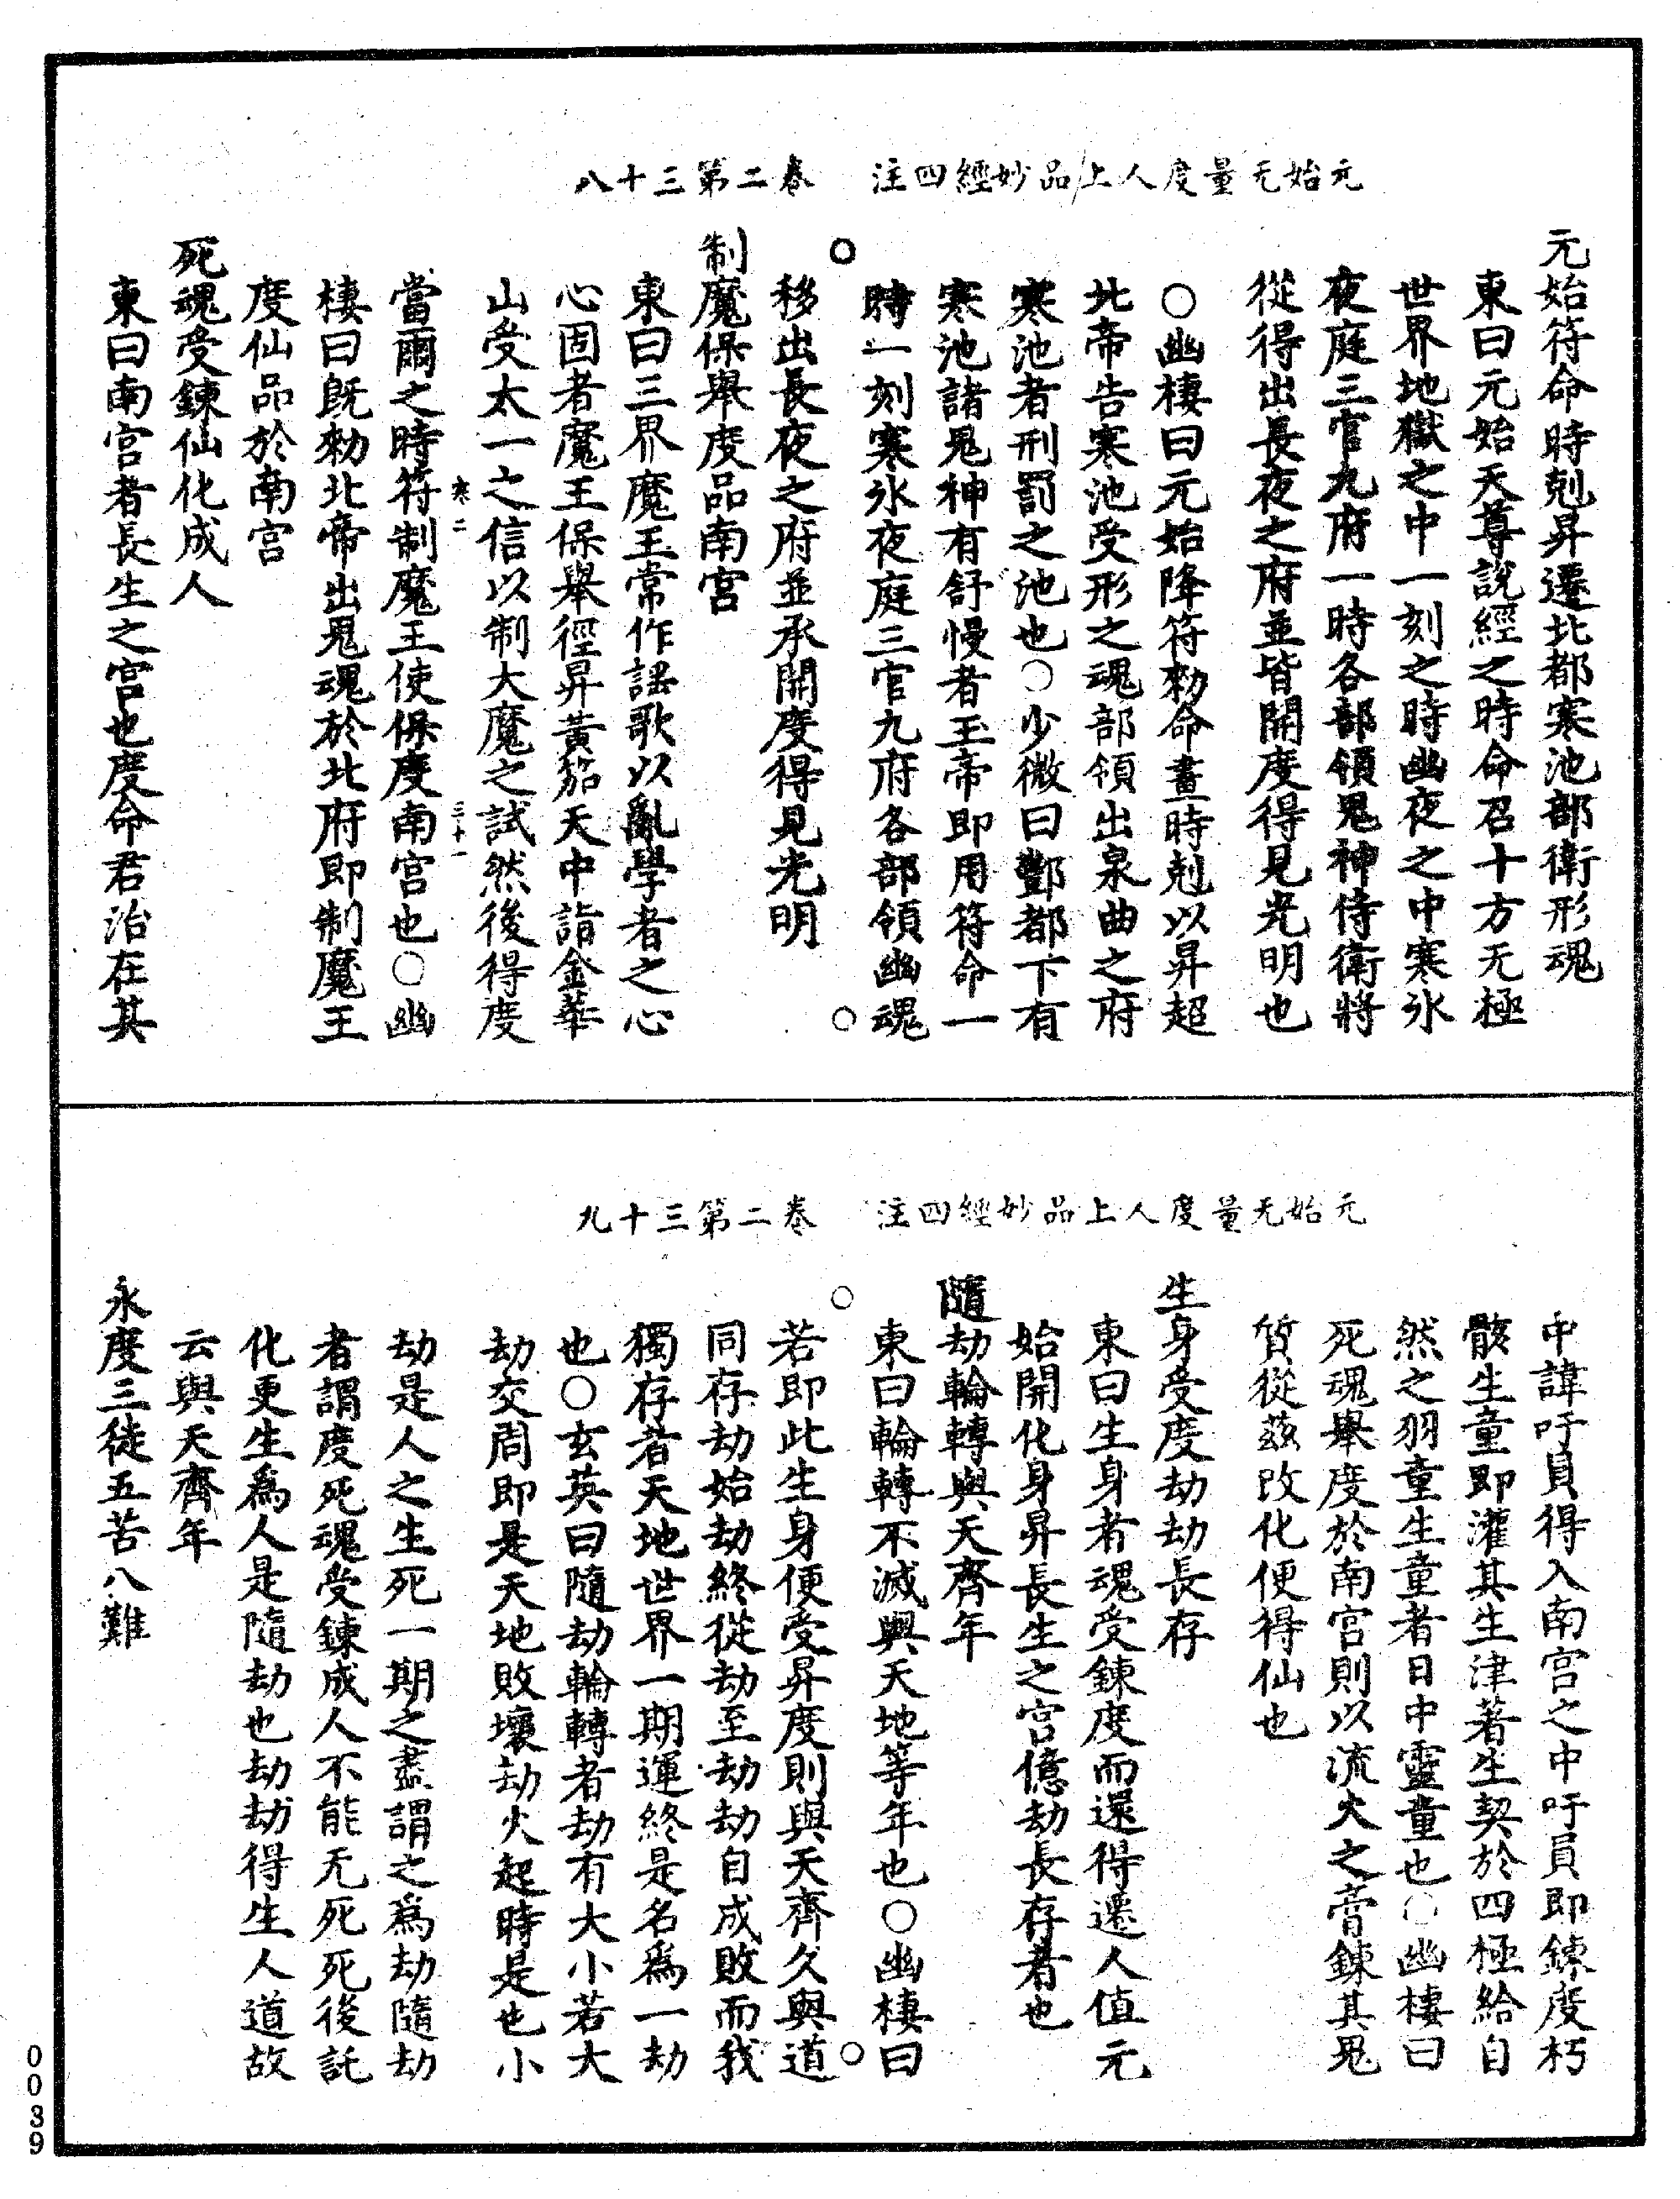 元始无量度人上品妙經四注　卷二第三十八
元始符命時剋昇遷北都寒池部衛形魂
東曰元始天尊說經之時命召十方无極
世界地獄之中一刻之時幽夜之中寒氷
夜庭三官九府一時各部領鬼神侍衛將
從得出長夜之府並皆開度得見光明也
○幽棲曰元始降符勑命晝時剋以昇超
北帝告寒池受形之魂部領出泉曲之府
寒池者刑罰之池也○少微曰酆都下有
寒池諸鬼神有舒慢者玉帝即用符命一
時一刻寒氷夜庭三官九府各部領幽魂
移出長夜之府並承開度得見光明
制魔保舉度品南宮
東曰三界魔王常作謡歌以亂學者之心
心固者魔王保舉徑昇黃笳天中詣金華
山受太一之信以制大魔之試然後得度
寒二　三十一
當爾之時符制魔王使保度南宮也○幽
棲曰旣勑北帝出鬼魂於北府即制魔王
度仙品於南宮
死魂受鍊仙化成人
東曰南宮者長生之宮也度命君治在其
元始无量度人上品妙經四注　卷二第三十九
中諱吁員得入南宮之中吁員即鍊度朽
骸生童即灌其生津著生契於四極給自
然之羽童生童者日中靈童也○幽棲曰
死魂舉度於南宮則以流火之膏鍊其鬼
質從茲改化便得仙也
生身受度劫劫長存
東曰生身者魂受鍊度而還得遷人值元
始開化身昇長生之宮億劫長存者也
隨劫輪轉與天齊年
東曰輪轉不滅與天地等年也○幽棲曰
若即此生身便受昇度則與天齊久與道
同存劫始劫終從劫至劫劫自成敗而我
獨存者天地世界一期運終是名爲一劫
也○玄英曰隨劫輪轉者劫有大小若大
劫交周即是天地敗壞劫火起時是也小
劫是人之生死一期之盡謂之爲劫隨劫
者謂度死魂受鍊成人不能无死死後託
化更生爲人是隨劫也劫劫得生人道故
云與天齊年
永度三徒五苦八難
0039